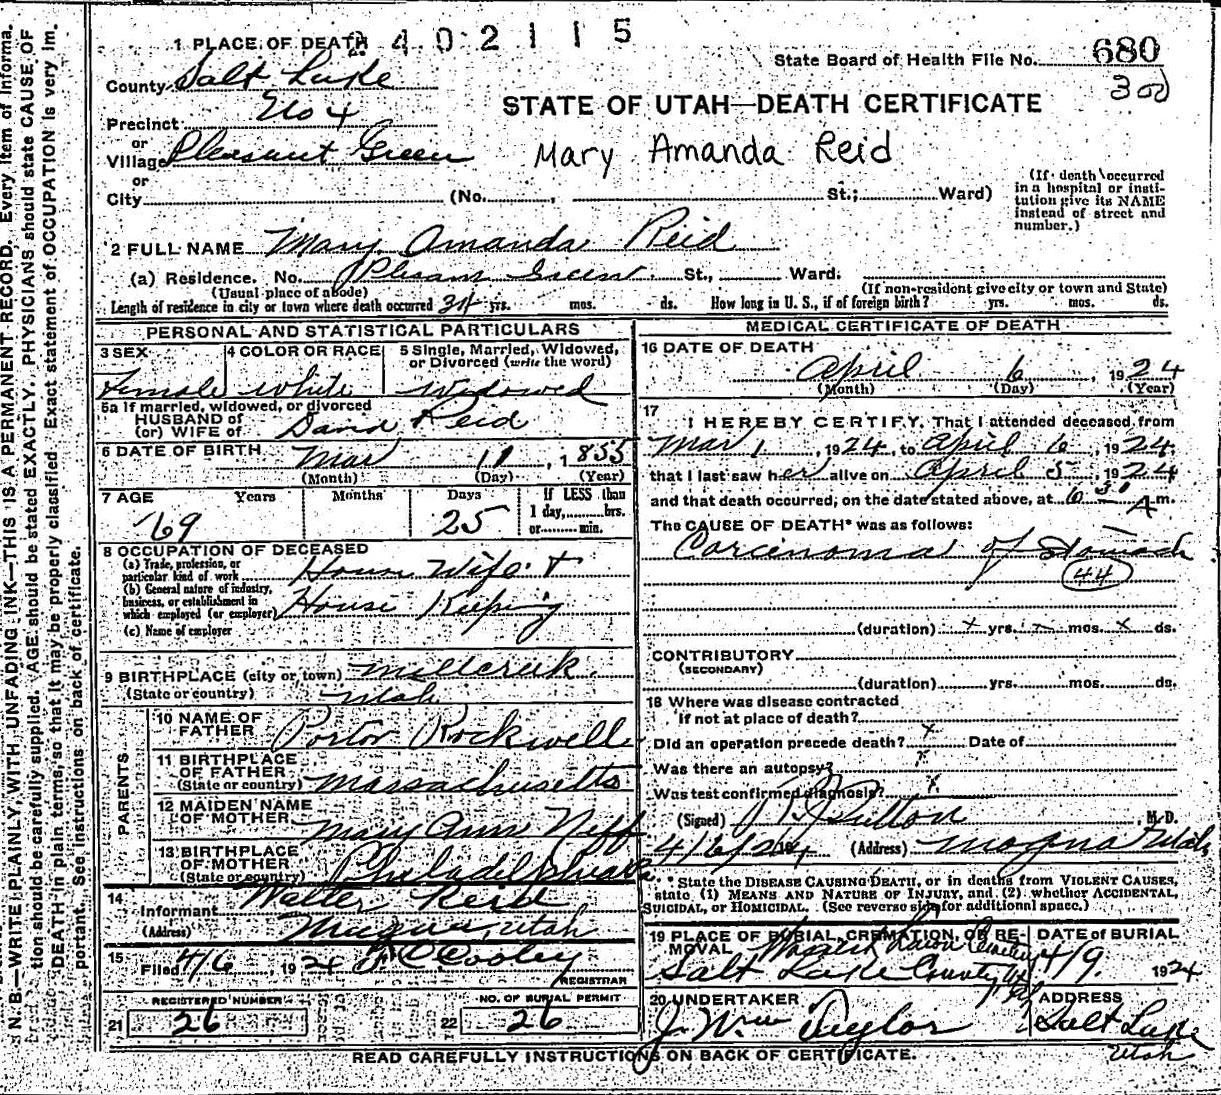 N. B.—WRITE PLAINLY, WITH UNFADING INK—THIS IS A PERMANENT RECORD. Every item of Informa-
tion should be carefully supplied. AGE should be stated EXACTLY. PHYSICIANS should state CAUSE OF
DEATH in plain terms, so that it may be properly classified. Exact statement of OCCUPATION is very im-
portant. See instructions on back of certificate.
2402115
1 PLACE OF DEATH
State Board of Health File No. 680
300
County Salt Lake
STATE OF UTAH—DEATH CERTIFICATE
Precinct No 4
or
Village Pleasant Green
Mary Amanda Reid
or
City (No. , St.; Ward)
(If death occurred
in a hospital or insti-
tution give its NAME
instead of street and
number.)
2 FULL NAME Mary Amanda Reid
(a) Residence. No. St., Ward.
(Usual place of abode) (If non-resident give city or town and State)
Length of residence in city or town where death occurred 34 yrs. mos. ds. How long in U. S., if of foreign birth? yrs. mos. ds.
PERSONAL AND STATISTICAL PARTICULARS
3 SEX 4 COLOR OR RACE 5 Single, Married, Widowed,
or Divorced (write the word)
Female white Widowed
5a If married, widowed, or divorced
HUSBAND of
(or) WIFE of David Reid
6 DATE OF BIRTH Mar 11, 1855
(Month) (Day) (Year)
7 AGE Years Months Days If LESS than
1 day, hrs.
or min.
69 25
8 OCCUPATION OF DECEASED
(a) Trade, profession, or
particular kind of work House Wife +
(b) General nature of industry,
business, or establishment in
which employed (or employer) House Keeping
(c) Name of employer
9 BIRTHPLACE (city or town) Millcreek
(State or country) Utah
PARENTS
10 NAME OF
FATHER Porter Rockwell
11 BIRTHPLACE
OF FATHER
(State or country) Massachusetts
12 MAIDEN NAME
OF MOTHER Mary Ann Neff
13 BIRTHPLACE
OF MOTHER
(State or country) Philadelphia Pa
14
Informant Walter Reid
(Address) Magna, Utah
15
Filed 4/6, 1924 F C Cooley
REGISTRAR
REGISTERED NUMBER NO. OF BURIAL PERMIT
21 26 22 26
MEDICAL CERTIFICATE OF DEATH
16 DATE OF DEATH
April 6, 1924
(Month) (Day) (Year)
17
I HEREBY CERTIFY, That I attended deceased from
Mar 1, 1924, to April 6, 1924,
that I last saw her alive on April 5, 1924
and that death occurred, on the date stated above, at 6 A m.
The CAUSE OF DEATH* was as follows:
Carcinoma of Stomach
44
(duration) x yrs. – mos. x ds.
CONTRIBUTORY
(SECONDARY)
(duration) yrs. mos. ds.
18 Where was disease contracted
if not at place of death?
Did an operation precede death? x Date of
Was there an autopsy? x
Was test confirmed diagnosis? x
(Signed) , M.D.
4/6/24 19 (Address) Magna Utah
* State the DISEASE CAUSING DEATH, or in deaths from VIOLENT CAUSES,
state (1) MEANS AND NATURE OF INJURY, and (2) whether ACCIDENTAL,
SUICIDAL, or HOMICIDAL. (See reverse side for additional space.)
19 PLACE OF BURIAL, CREMATION, OR RE-
MOVAL
Salt Lake County
DATE of BURIAL
4/9. 1924
20 UNDERTAKER
J. Wm Taylor
ADDRESS
Salt Lake
Utah
READ CAREFULLY INSTRUCTIONS ON BACK OF CERTIFICATE.